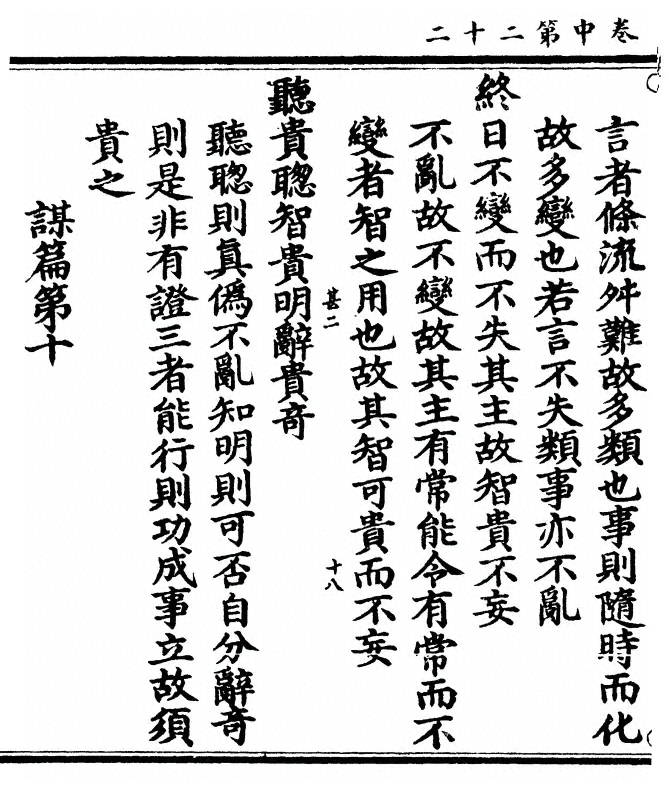 卷中第二十二
言者條流舛難故多類也事則隨時而化
故多變也若言不失類事亦不亂
終日不變而不失其主故智貴不妄
不亂故不變故其主有常能令有常而不
變者智之用也故其智可貴而不妄
甚二
十八
聽貴聰智貴明辭貴奇
聽聰則真偽不亂知明則可否自分辭奇
則是非有證三者能行則功成事立故須
貴之
謀篇第十